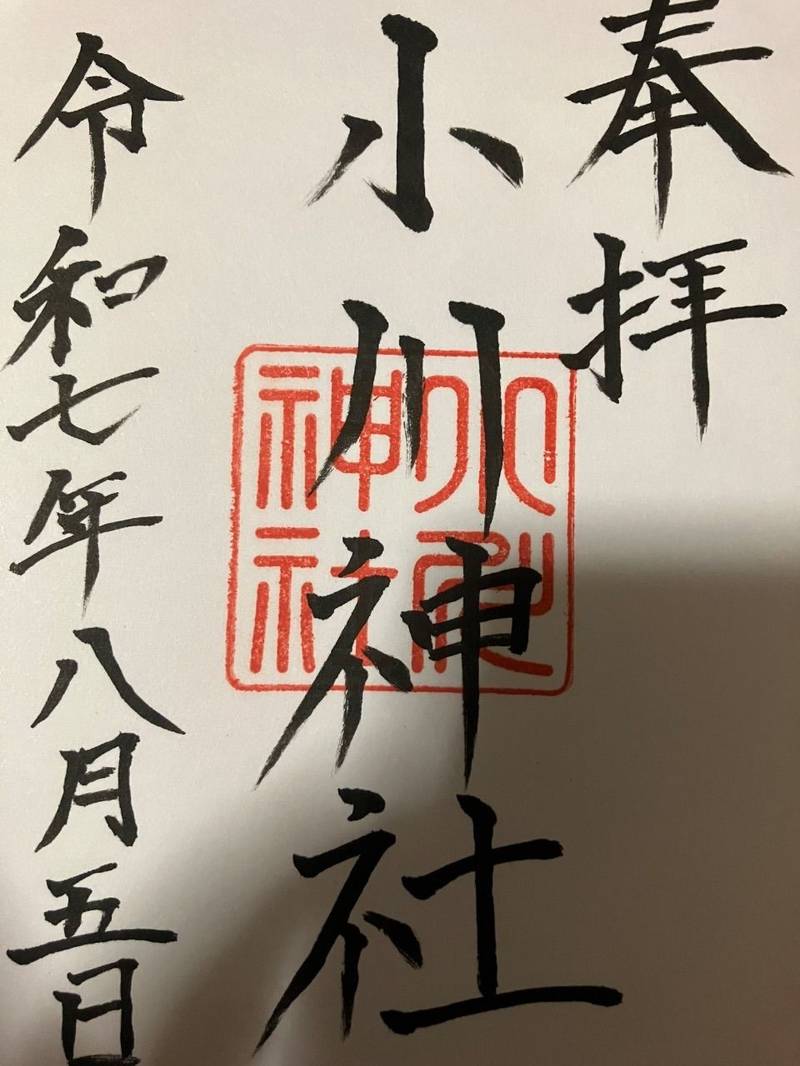 奉拝
小川神社
小川神社
令和七年八月五日